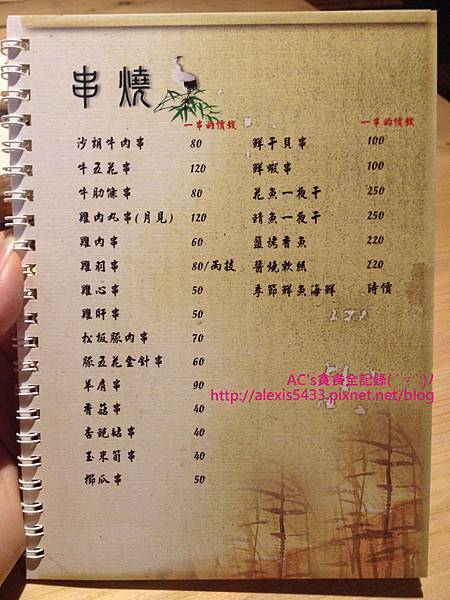 串燒
一串的價錢
沙朗牛肉串 80
牛五花串 120
牛肋條串 80
雞肉丸串(月見) 120
雞肉串 60
雞羽串 80/兩技
雞心串 50
雞肝串 50
松板豚肉串 70
豚五花金針串 60
羊肩串 90
香菇串 40
杏鮑菇串 40
玉米筍串 40
櫛瓜串 50
一串的價錢
鮮干貝串 100
鮮蝦串 100
花魚一夜干 250
鯖魚一夜干 250
鹽烤香魚 220
醬燒軟絲 220
季節鮮魚海鮮 時價
AC's貪食全記錄(´▽`)/
http://alexis5433.pixnet.net/blog